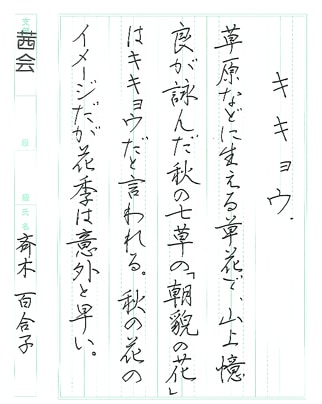 キキョウ.
草原などに生える草花で、山上憶
良が詠んだ秋の七草の「朝貌の花」
はキキョウだと言われる。秋の花の
イメージだが花季は意外と早い。
支
茜会
段
級
氏名
斉木 百合子